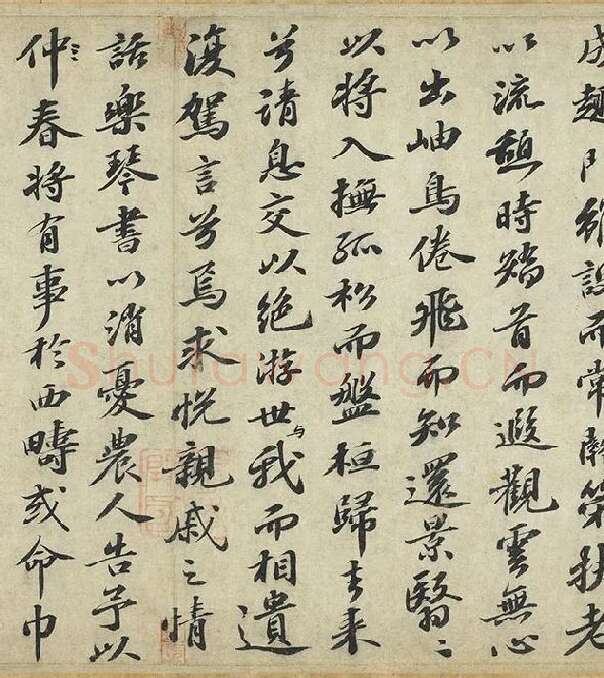 成趣門雖設而常關策扶老
以流憩時矯首而遐觀雲無心
以出岫鳥倦飛而知還景翳〻
以將入撫孤松而盤桓歸去來
兮請息交以絕游世与我而相遺
復駕言兮焉求悅親戚之情
話樂琴書以消憂農人告予以
仲春將有事於西疇或命巾
Shufawang.CN